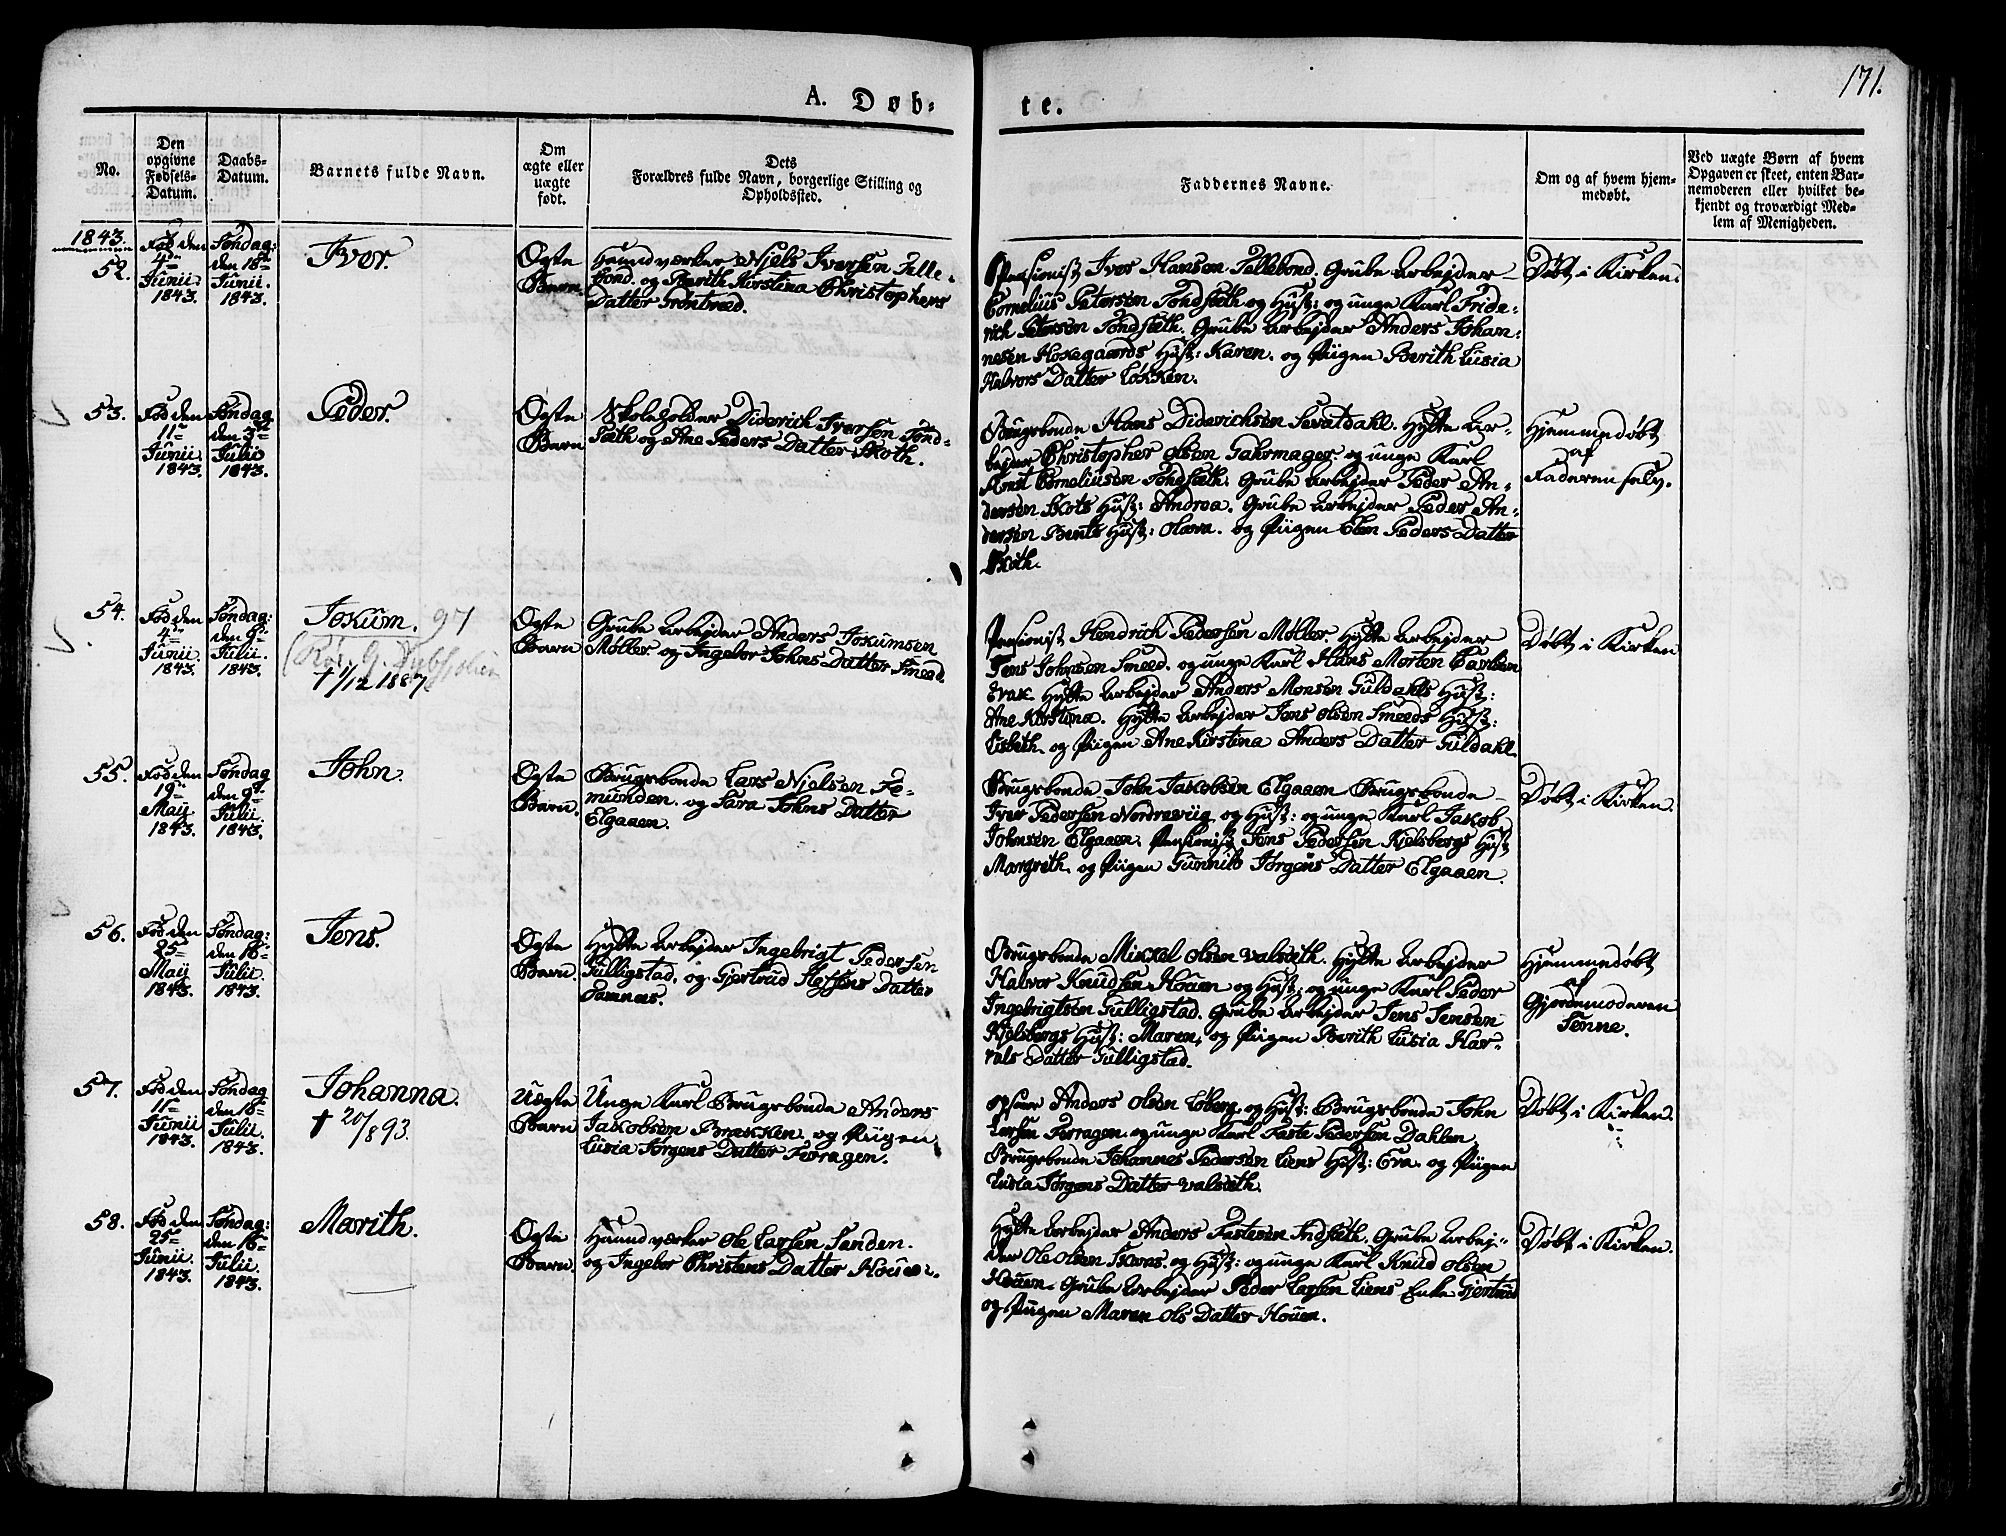 171.
A. Døb-
te.
No.
Den opgivne Fødsels-Datum.
Daabs-Datum.
Barnets fulde Navn.
Om ægte eller uægte født.
Dets Forældres fulde Navn, borgerlige Stilling og Opholdssted.
Faddernes Navne.
Om og af hvem hjem-
medøbt.
Ved uægte Børn af hvem
Opgaven er skeet, enten Bar-
nemoderen eller hvilket be-
kjendt og troværdigt Med-
lem af Menigheden.
1843.
52.
Fød den
4de
Junii
1843.
Søndag:
den 18de
Junii.
1843.
Iver.
Ægte
Barn
Haandværker Niels Iversen Telle-
bond. og Berith Kirstina Christophers
Datter Trøntrød.
Pensionist Iver Hansen Tellebond. Grube Arbejder
Cornelius Petersen Tondsæth og Hust: og unge Karl Fride-
rich Petersen Tondsæth. Grube Arbejder Anders Johan-
nesen Hosegaards Hust: Karen. og Piigen Berith Lusia
Halvors Datter Løkken.
Døbt i Kirken.
53.
Fød den
11te
Junii
1843.
Søndag
den
Julii
1843.
Peder.
Ægte
Barn
Skoleholder Diderich Iversen Tønd-
sæth og Ane Peders Datter Skoth.
Brugsbonde Hans Diderichsen Sevatdahl. Hytte Ar-
bejder Christopher Olsen Gahrmager og unge Karl
Arnt Corneliusen Tondsæth. Grube Arbejder Peder An-
dersen Skots Hust: Andrea. Grube Arbejder Peder An-
dersen Bents Hust: Olava. og Piigen Elen Peders Datter
Skoth.
Hjemmedøbt
af
Faderen selv.
54.
Fød den
4de
Junii.
1843.
Søndag:
den 9de
Julii.
1843.
Jokum. 97
† 1/12 1887
Ægte
Barn
Grube Arbejder Anders Jokumsen
Møller og Ingebor Johns Datter Smeed.
Pensionist Hendrich Pedersen Møller. Hytte Arbejder
Jens Johnsen Smeed. og unge Karl Hans Morten Carlsen
Hytte Arbejder Anders Monsen Guldahls Hust:
Ane Kirstina. Hytte Arbejder Jens Olsen Smeeds Hust:
Lisbeth. og Piigen Ane Kirstina Anders Datter Guldahl
Døbt i Kirken
55.
Fød den
19de
Maij
1843.
Søndag
den 9de
Julii.
1843.
John.
Ægte
Barn.
Brugsbonde Lars Nielsen Fe-
munden. og Sara Johns Datter
Elgaaen.
Brugsbonde John Jakobsen Elgaaen Brugsbonde
Iver Pedersen Nordreviig og Hust: og unge Karl Jakob
Johnsen Elgaaen. Pensionist Jens Pedersen Kjelsbergs Hust
Margreth. og Piigen Gunnild Jørgens Datter Elgaaen.
Døbt i Kirken.
56.
Fød den
25de
Maij
1843.
Søndag:
den 16de
Julii.
1843.
Jens.
Ægte
Barn.
Hytte Arbejder Ingebrigt Pedersen
Tulligstad. og Gjertrud Datter
Brugsbonde Mikkel Olsen Valsæth. Hytte Arbejder
Halvor Knudsen Houen og Hust: og unge Karl Peder
Ingebrigtsen Tulligstad. Grube Arbejder Jens Jensen
Kjelsbergs Hust: Maren, og Piigen Berith Lusia Har-
Datter Tulligstad.
Hjemmedøbt
af
Gjordemoderen
Tenne.
57.
Fød den
11te
Junii
1843.
Søndag
den 16de
Julii.
1843.
Johanna.
† 20/8 93.
Uægte
Barn
Unge Karl Brugsbonde Anders
Jakobsen Brækken og Piigen
Lusia Jørgens Datter Feragen.
Anders Olsen Løberg og Hust: Brugsbonde John
Larsen Feragen. og unge Karl Faste Pedersen Dahlen
Brugsbonde Johannes Pedersen Liens Hust: Eva. og Piigen
Lusia Jørgens Datter Valsæth.
Døbt i Kirken.
58.
Fød den
25de
Junii.
1843.
Søndag:
den 16de
Julii.
1843.
Marith.
Ægte
Barn.
Haandværker Ole Larsen Sanden.
og Ingebor Christens Datter Houen.
Hytte Arbejder Anders Fastesen Indsæth. Grube Arbej-
der Ole Olsen og Hust: og unge Karl Knud Olsen
Houen. Grube Arbejder Peder Larsen Liens Enke Gjertrud
og Piigen Maren Ols Datter Houen.
Døbt i Kirken.